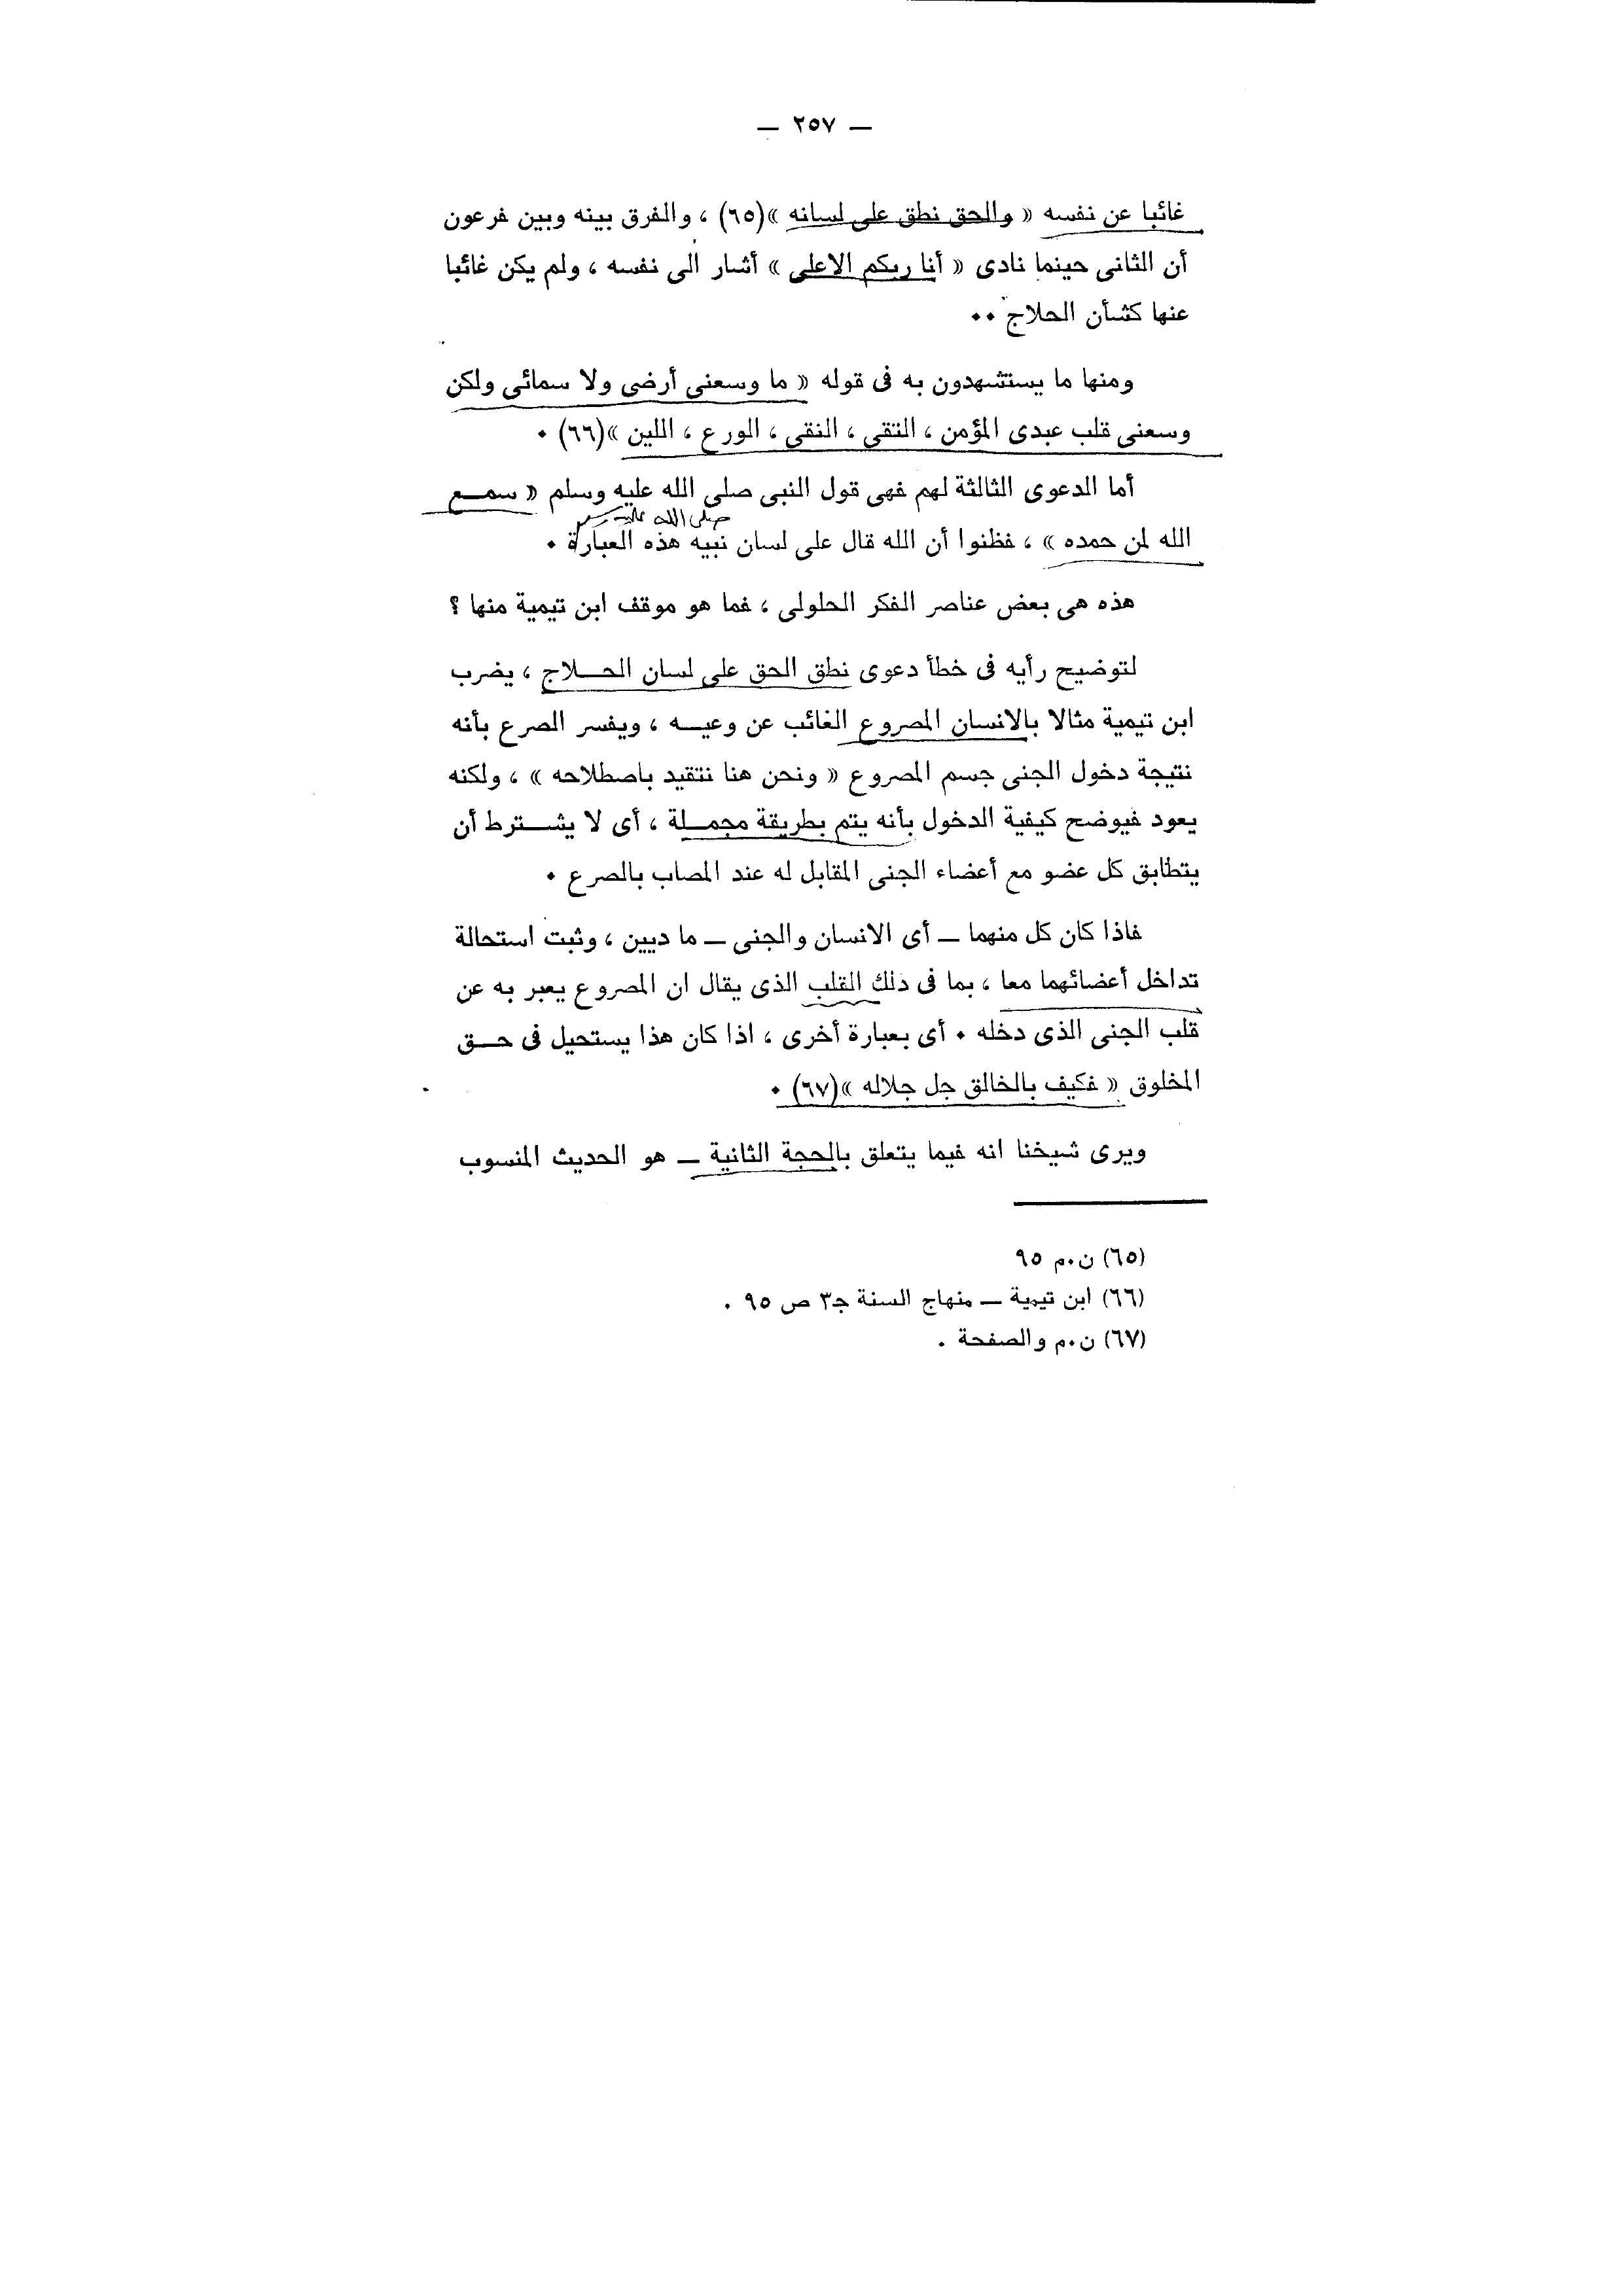 — ٢٥٧ —
غائبا عن نفسه « والحق نطق على لسانه »(٦٥) ، والفرق بينه وبين فرعون
أن الثانى حينما نادى « أنا ربكم الاعلى » أشار الى نفسه ، ولم يكن غائبا
عنها كشأن الحلاج ٠٠
ومنها ما يستشهدون به فى قوله « ما وسعنى أرضى ولا سمائى ولكن
وسعنى قلب عبدى المؤمن ، التقى ، النقى ، الورع ، اللين »(٦٦) ٠
أما الدعوى الثالثة لهم فهى قول النبى صلى الله عليه وسلم « سمـــع
صلى الله عليه وسلم
الله لمن حمده » ، فظنوا أن الله قال على لسان نبيه هذه العبارة ٠
هذه هى بعض عناصر الفكر الحلولى ، فما هو موقف ابن تيمية منها ؟
لتوضيح رأيه فى خطأ دعوى نطق الحق على لسان الحـــلاج ، يضرب
ابن تيمية مثالا بالانسان المصروع الغائب عن وعيـــه ، ويفسر الصرع بأنه
نتيجة دخول الجنى جسم المصروع « ونحن هنا نتقيد باصطلاحه » ، ولكنه
يعود فيوضح كيفية الدخول بأنه يتم بطريقة مجمـــلة ، أى لا يشـــترط أن
يتطابق كل عضو مع أعضاء الجنى المقابل له عند المصاب بالصرع ٠
فاذا كان كل منهما — أى الانسان والجنى — ما ديين ، وثبت استحالة
تداخل أعضائهما معا ، بما فى ذلك القلب الذى يقال ان المصروع يعبر به عن
قلب الجنى الذى دخله ٠ أى بعبارة أخرى ، اذا كان هذا يستحيل فى حـــق
المخلوق « فكيف بالخالق جل جلاله »(٦٧) ٠
ويرى شيخنا انه فيما يتعلق بالحجة الثانية — هو الحديث المنسوب
(٦٥) ن٠م ٩٥
(٦٦) ابن تيمية — منهاج السنة جـ٣ ص ٩٥ .
(٦٧) ن٠م والصفحة .